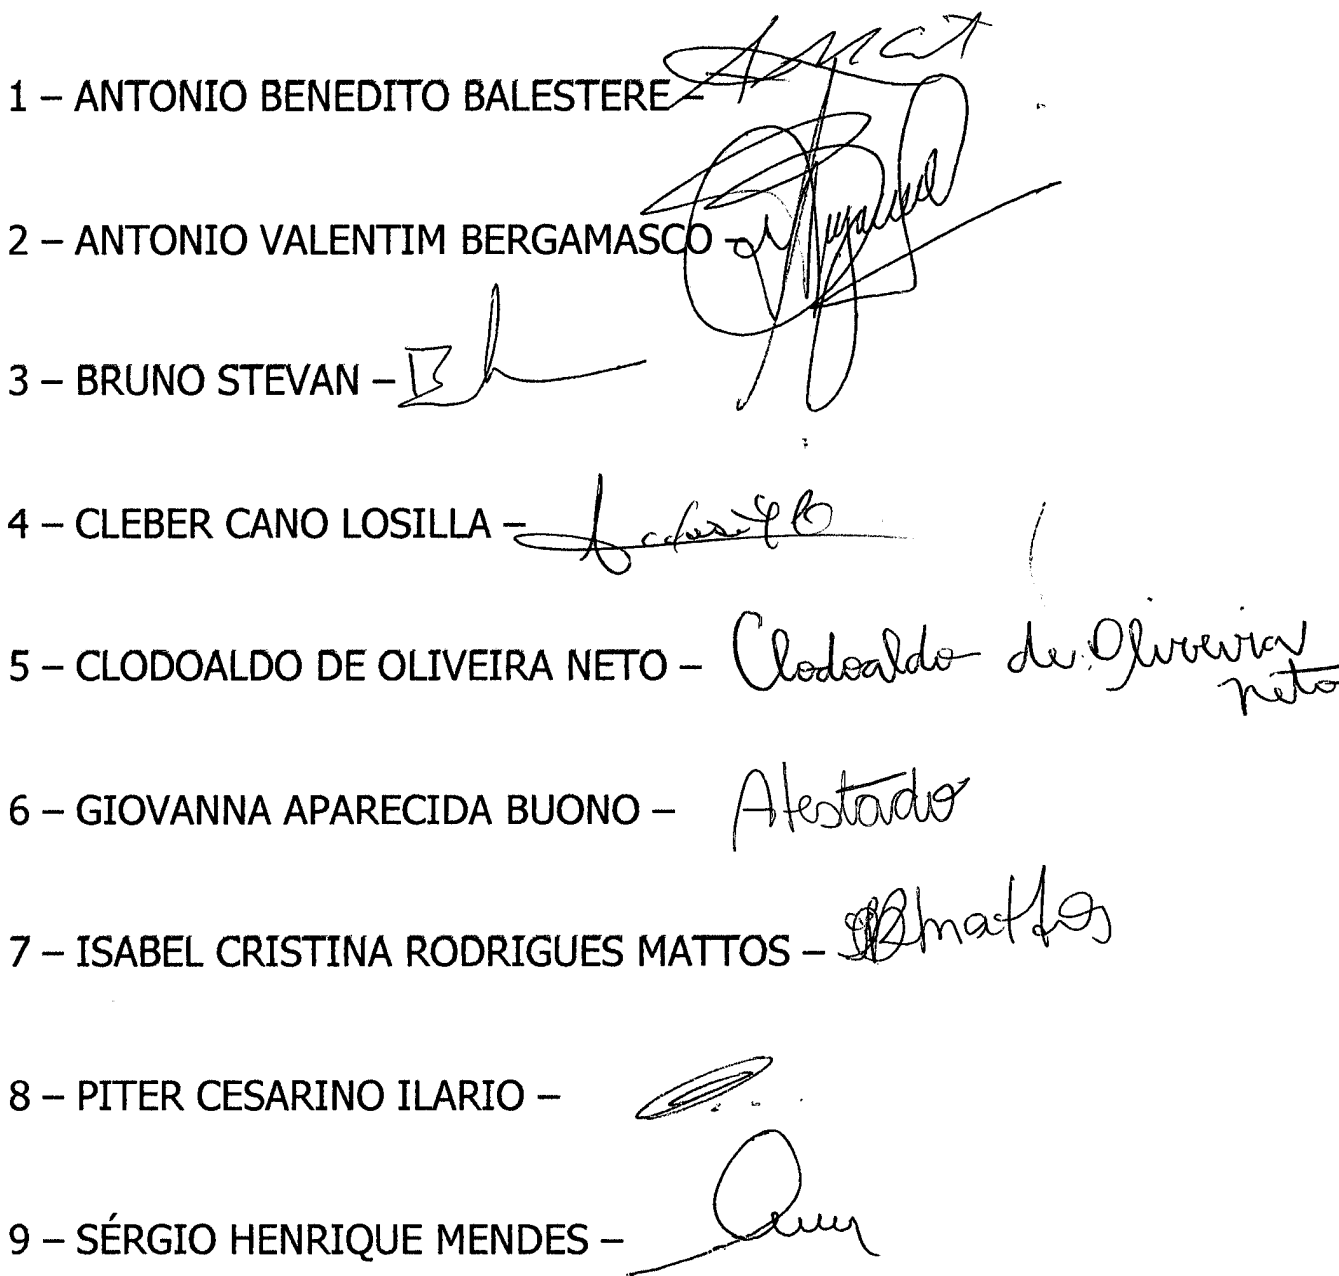 1 – ANTONIO BENEDITO BALESTERE –
2 – ANTONIO VALENTIM BERGAMASCO –
3 – BRUNO STEVAN –
4 – CLEBER CANO LOSILLA –
5 – CLODOALDO DE OLIVEIRA NETO – Clodoaldo de Oliveira
Neto
6 – GIOVANNA APARECIDA BUONO – Atestado
7 – ISABEL CRISTINA RODRIGUES MATTOS –
8 – PITER CESARINO ILARIO –
9 – SÉRGIO HENRIQUE MENDES –